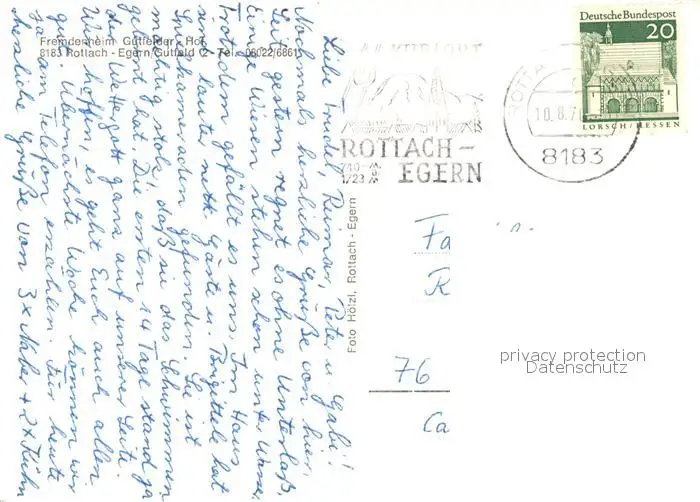 Fremdenheim Gutfelder Hof
8183 Rottach - Egern / Gutfeld 2 - Tel. 08022/6861
Liebe Friedel, Reimar, Peter u. Gabi!
Nochmals herzliche Grüße von hier.
Seit gestern regnet es ohne Unterlaß.
Die Wiesen stehen schon unter Wasser.
Trotzdem gefällt es uns. Im Haus
sind lauter nette Gäste u. Brigittele hat
Spielkameraden gefunden. Sie ist
mächtig stolz, daß sie das Schwimmen
gelernt hat. Die ersten 14 Tage stand ja
der Wettergott ganz auf unserer Seite.
Wir hoffen, es geht Euch auch allen
gut. Übernächste Woche können wir
ja am Telefon erzählen. Für heute
herzliche Grüße von 3x Naber + 2x Kühn
Foto Hölzl, Rottach - Egern
KURORT
ROTTACH-
EGERN
740 m
1/23
ROTTA
10.8.7
8183
Deutsche Bundespost
20
LORSCH/HESSEN
Fa
R
76
Ca
privacy protection
Datenschutz